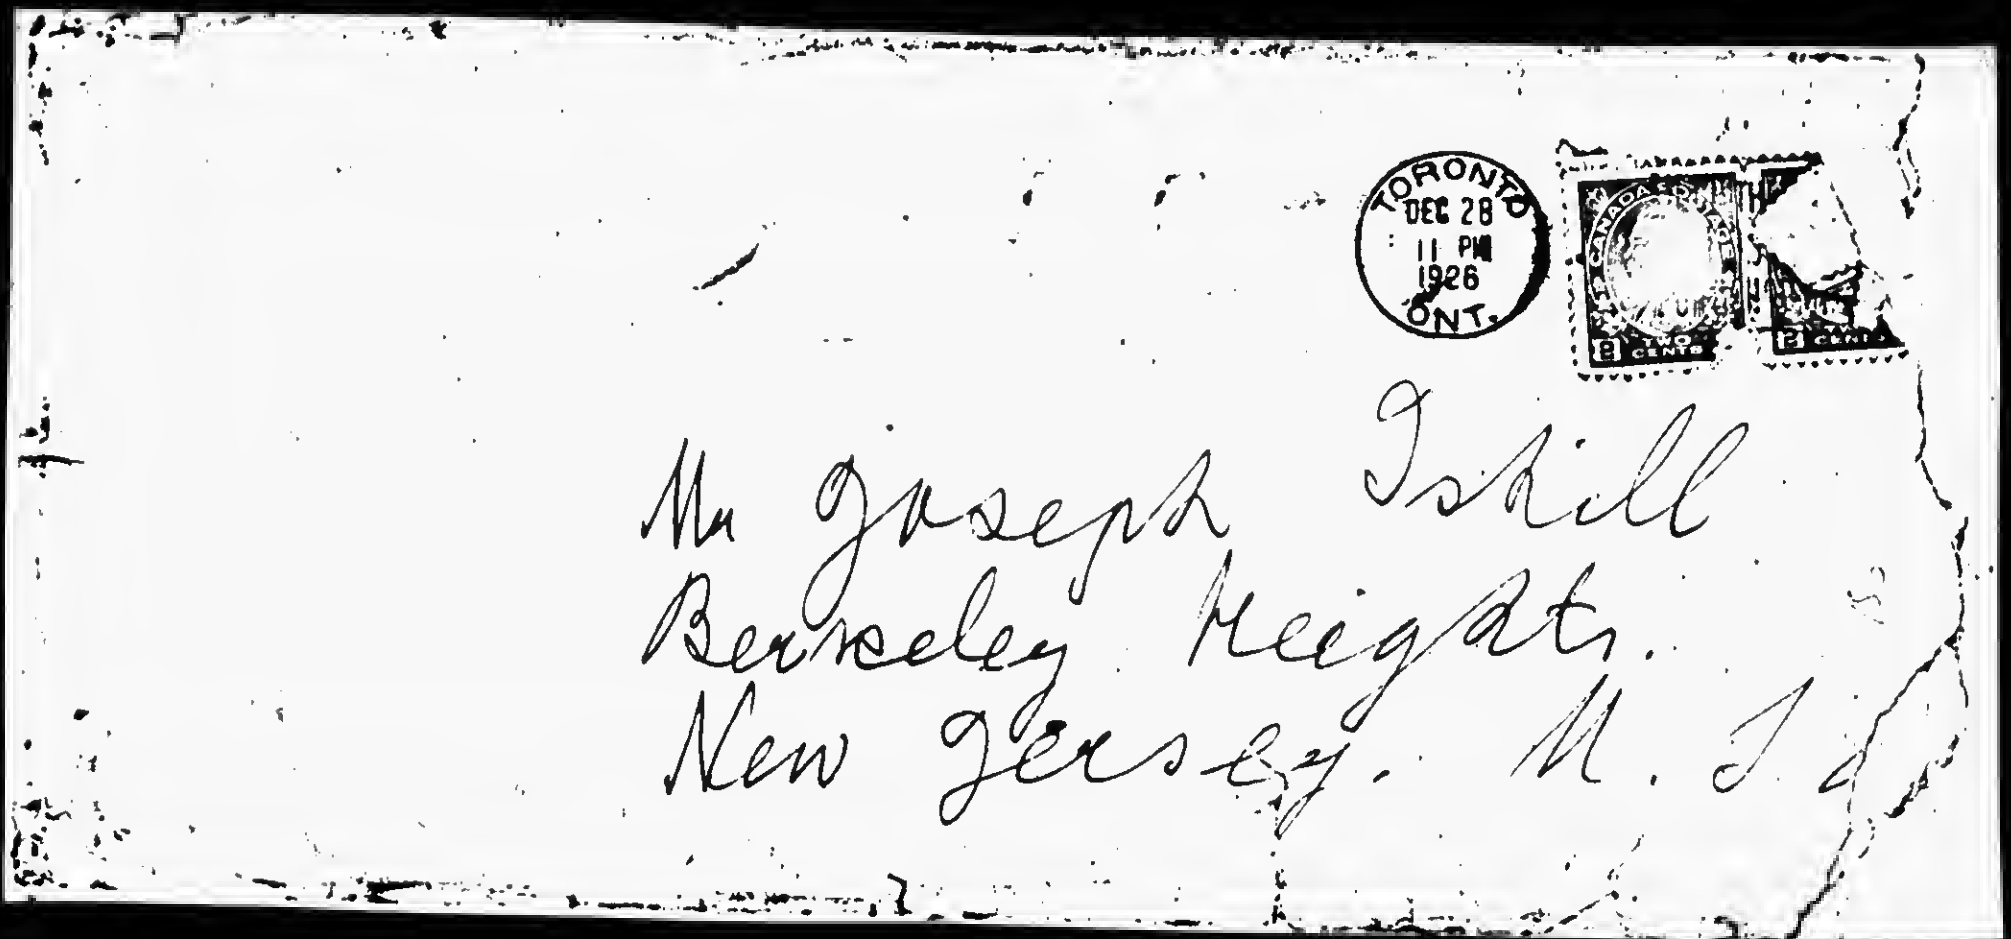 TORONTO
DEC 28
11 PM
1926
ONT.
CANADA POSTAGE
2 TWO CENTS
2 CENTS
Mr Joseph Ishill
Berkeley Heights.
New Jersey. U. S.